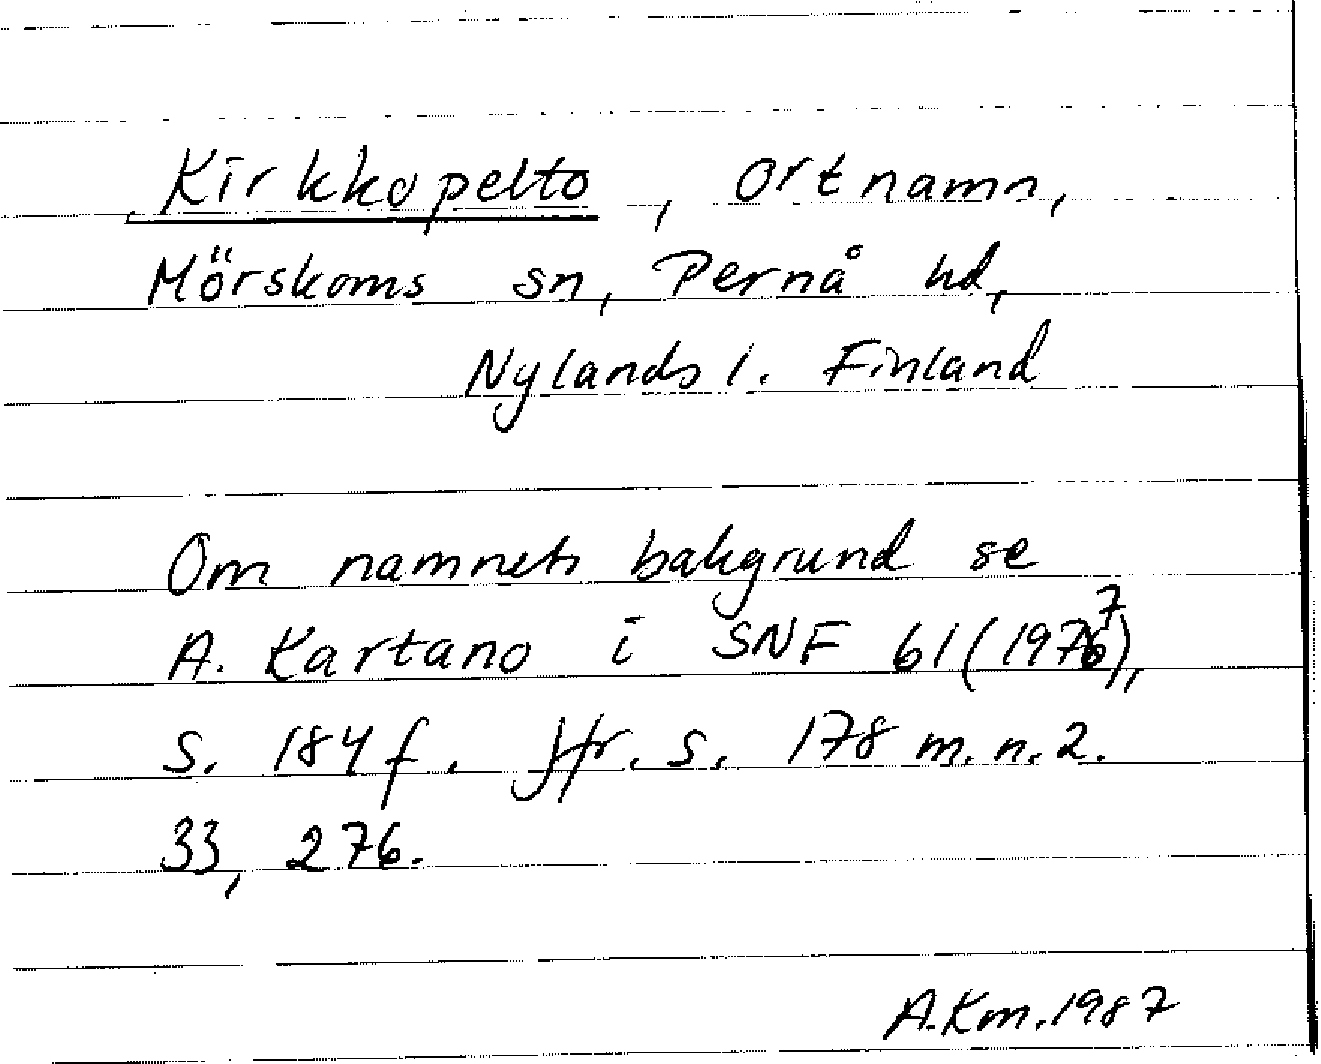 Kirkkopelto, ortnamn,
Mörskoms sn, Pernå hd,
Nylands l. Finland
Om namnets bakgrund se
A. Kartano i SNF 61 (1977),
s. 184 f. Jfr. s. 178 m. n. 2.
33, 276.
A.Km. 1987